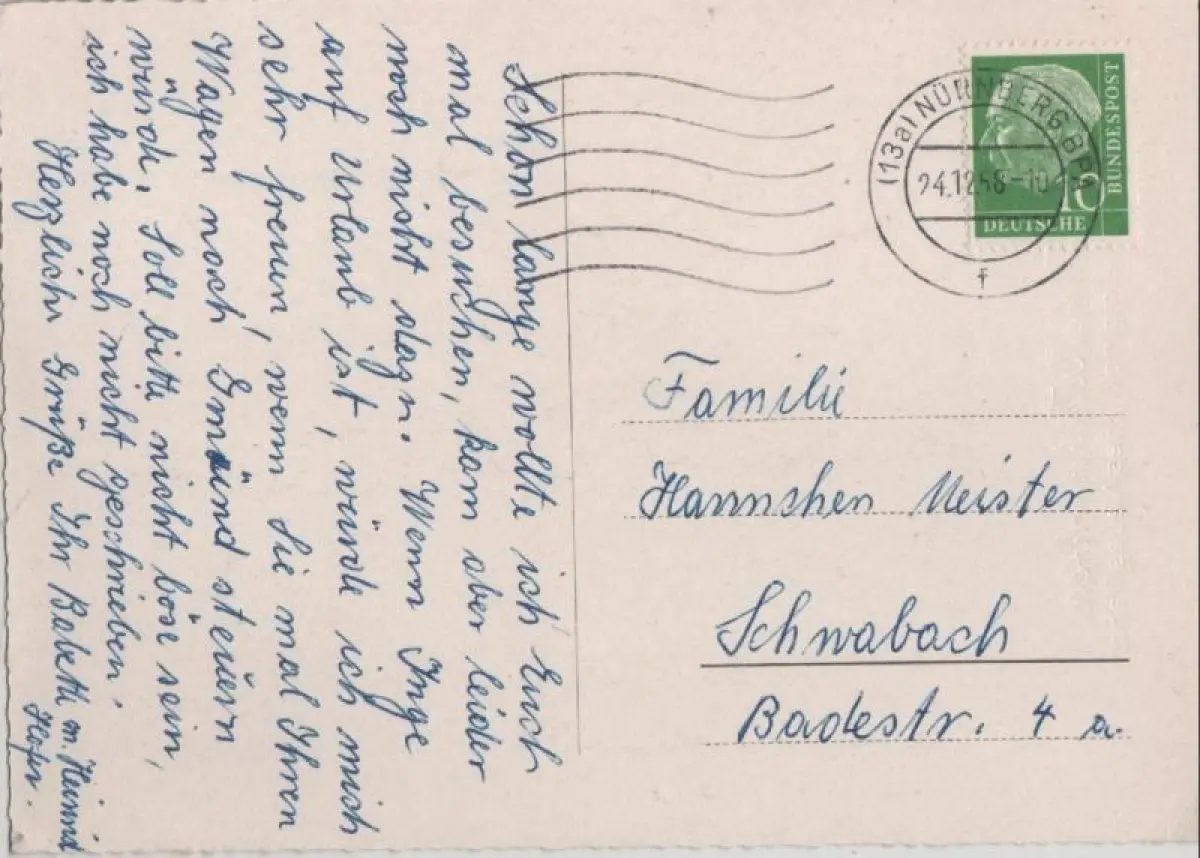 Schon lange wollte ich Euch
mal besuchen, kam aber leider
noch nicht dazu. Wenn Inge
auf Urlaub ist, würde ich mich
sehr freuen, wenn Sie mal Ihren
Wagen nach Gmünd steuern
würde. Soll bitte nicht böse sein,
ich habe noch nicht geschrieben.
Herzliche Grüße Ihr Babette m. Heinrich
(13a) NÜRNBERG BPA
24.12.58-10
f
BUNDESPOST
10
DEUTSCHE
Familie
Hannchen Meister
Schwabach
Badestr. 4 a.